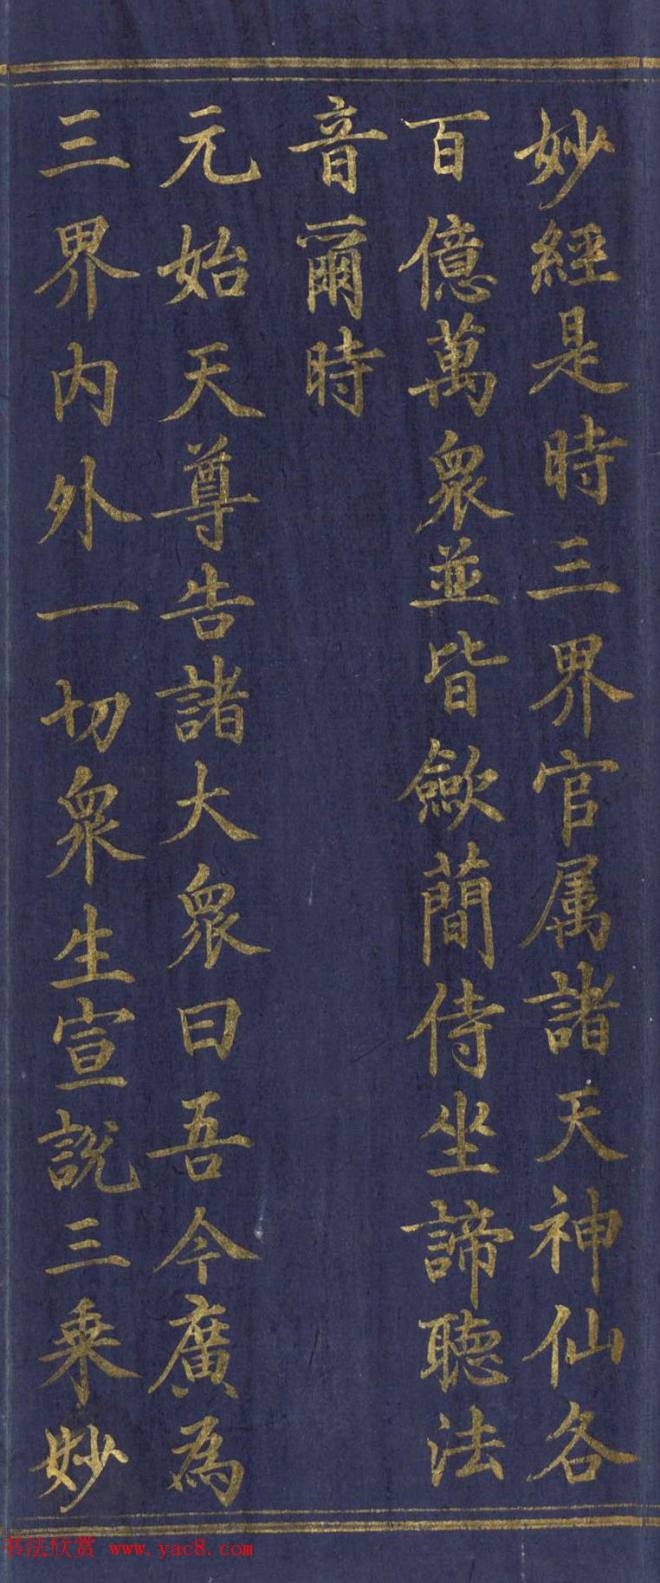 妙經是時三界官属諸天神仙各
百億萬衆並皆歛簡侍坐諦聽法
音爾時
元始天尊告諸大衆曰吾今廣為
三界內外一切衆生宣說三乗妙
书法欣赏 www.yac8.com